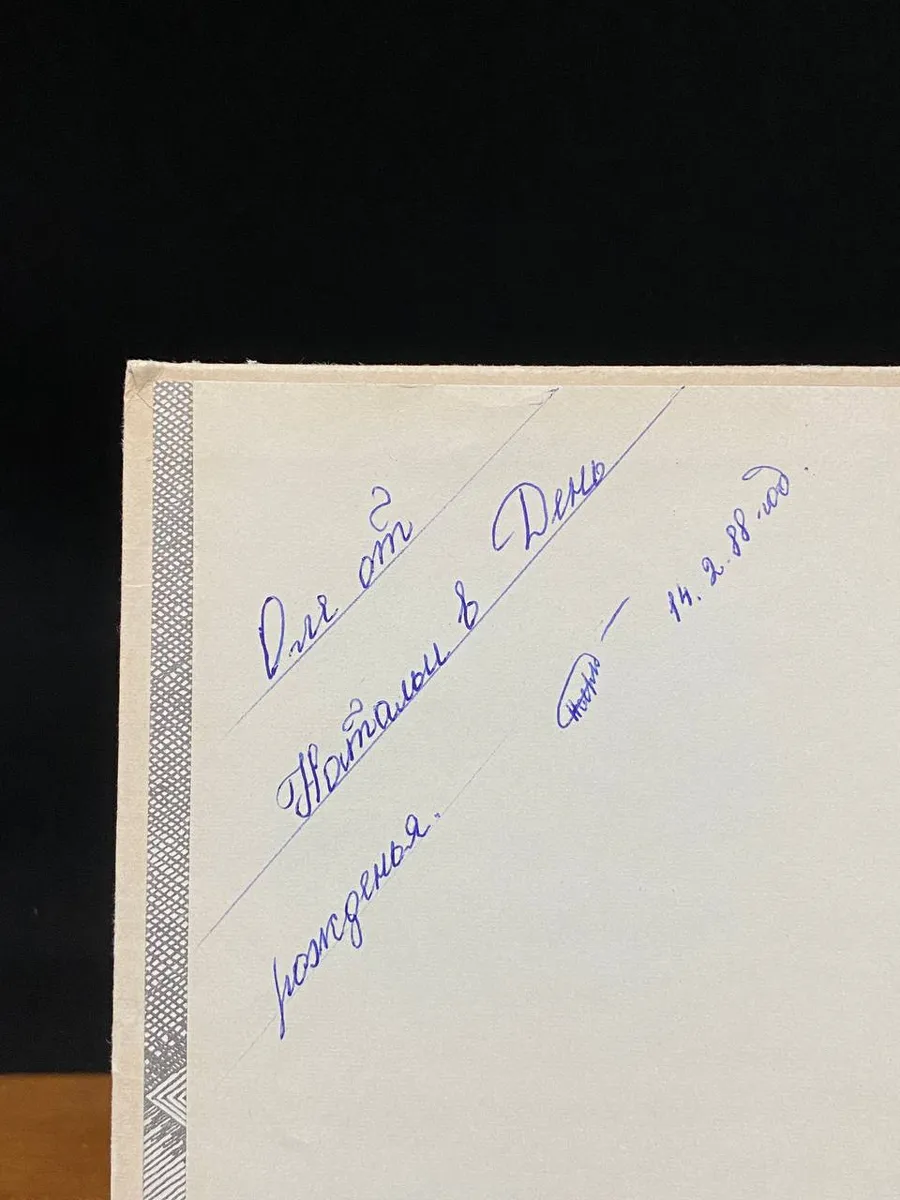 Оле от
Натальи в День
рожденья.
14.2.88.год.